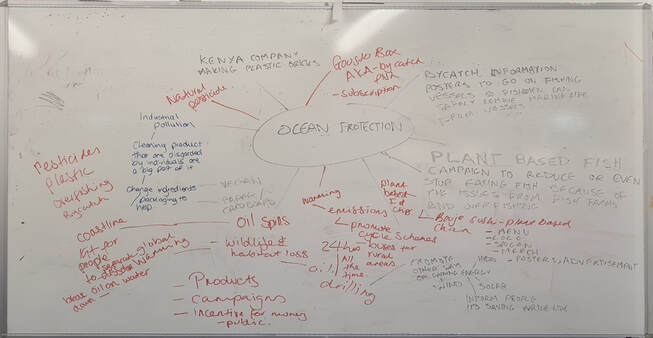 KENYA COMPANY
MAKING PLASTIC BRICKS
Gousto Box
AKA - bycatch
- Subscription
BYCATCH INFORMATION
POSTERS TO GO ON FISHING
VESSELS SO FISHERMEN CAN
SAFELY REMOVE MARINE LIFE
FROM VESSELS
Natural
pesticide
OCEAN PROTECTION
Industrial
pollution
Cleaning product
that are disgarded
by individuals are
a big part of it
change ingredients
/packaging to
help
VEGAN
CAMPAIGNS
Pesticides
Plastic
Overfishing
Bycatch
PLANT BASED FISH
CAMPAIGN TO REDUCE OR EVEN
STOP EATING FISH BECAUSE OF
THE ISSUES FROM FISH FARMS
AND OVERFISHING
plant
based
chips
Bouje sushi - plant based
Chain
- MENU
- LOGO
- SLOGAN
- MERCH
- POSTERS & ADVERTISEMENT
emissions
- promote
cycle schemes
- buses for
rural
areas
24hrs
All
the
time
Oil Spills
wildlife &
habitat loss
global
warming
coastline
kit for
people
to separate
oil on water
oil
drilling
- PROMOTE
OTHER
ENERGY
WIND
SOLAR
INFORM PEOPLE
- Products
- Campaigns
- Incentive for money
- public.